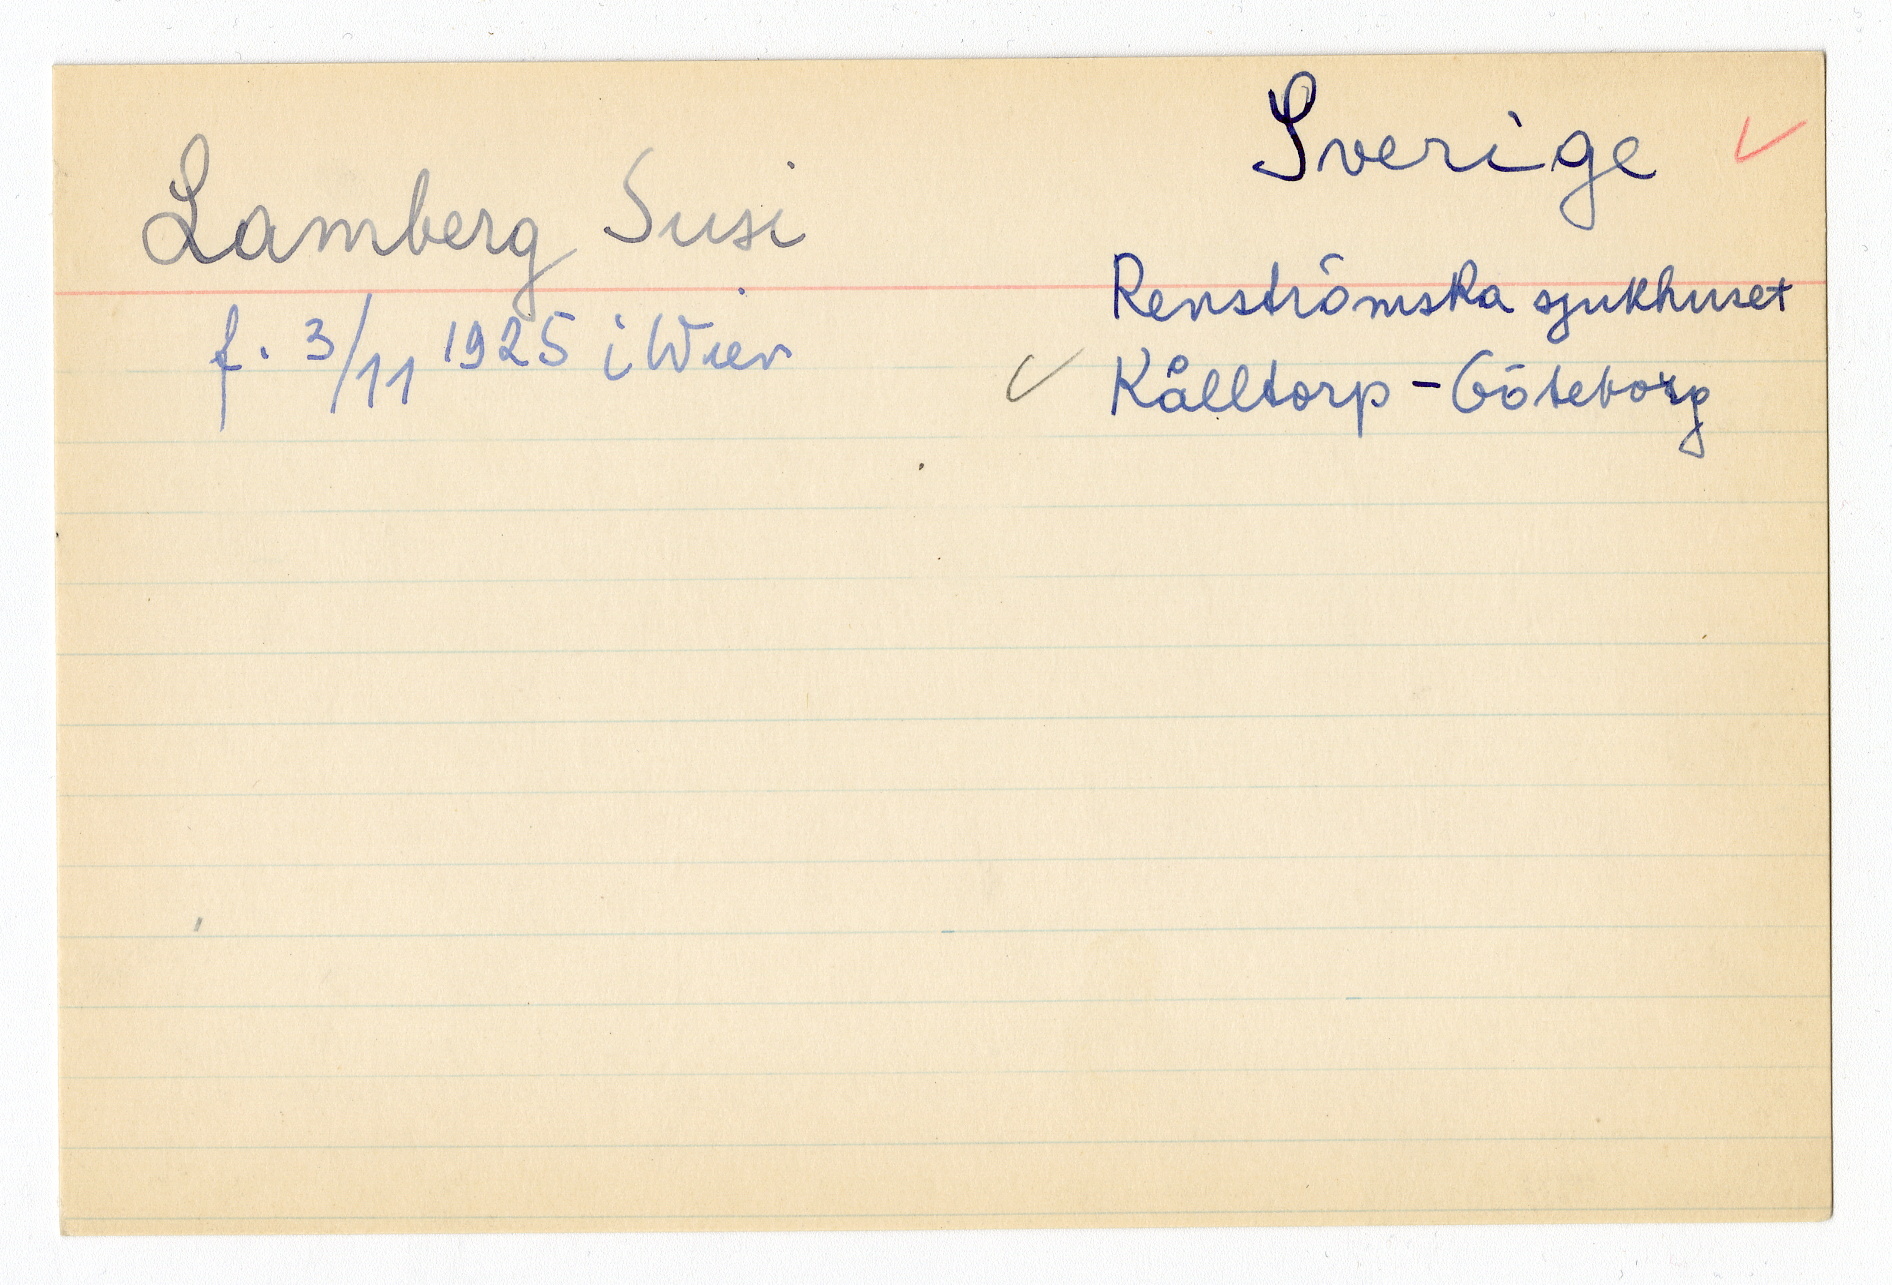 Sverige
Lamberg Susi
f. 3/11 1925 i Wien
Renströmska sjukhuset
Kålltorp - Göteborg